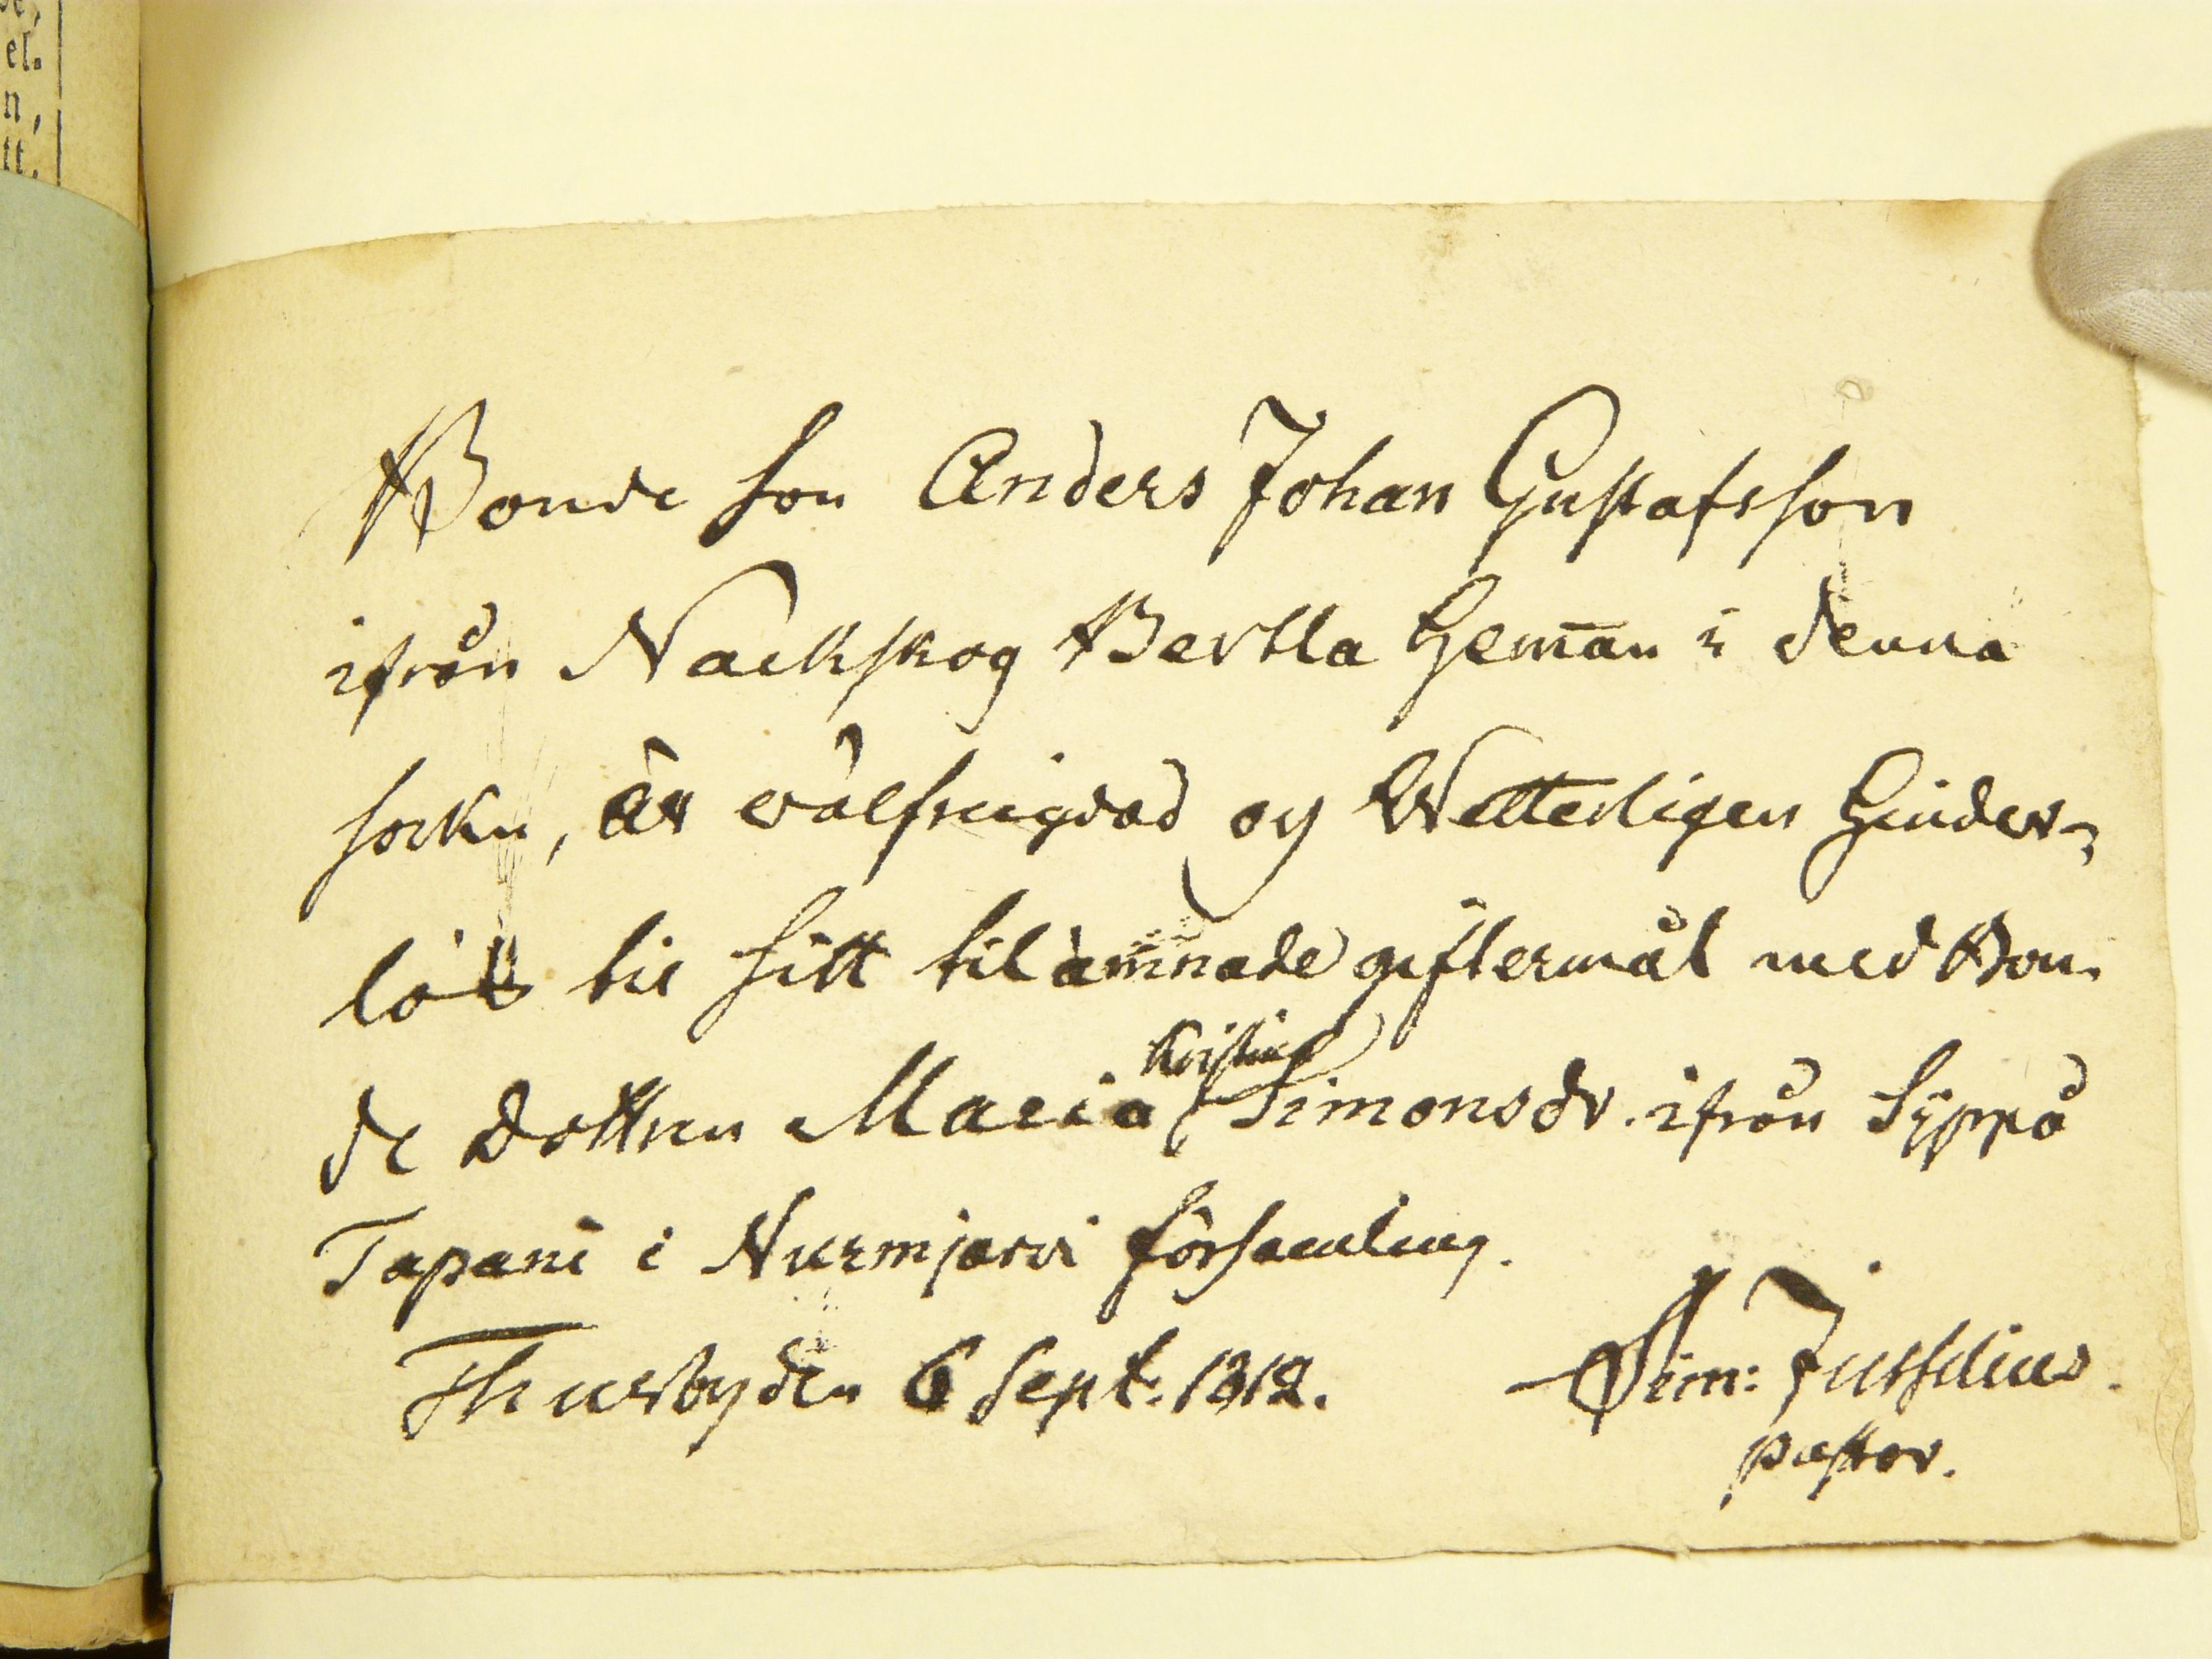 el.
n,
tt.
Bonde Son Anders Johan Gustafsson
ifrån Nackskog Bertla Heman i denna
sockn, är välfreigdad og Wetterligen hinder-
löß til sitt tilämnade giftermål med Bon-
de Dottren Maria Kristina Simonsdr. ifrån Syppå
Tapani i Nurmjarvi församling.
Thusby den 6 Sept. 1812.
Sim: Juselius.
pastor.